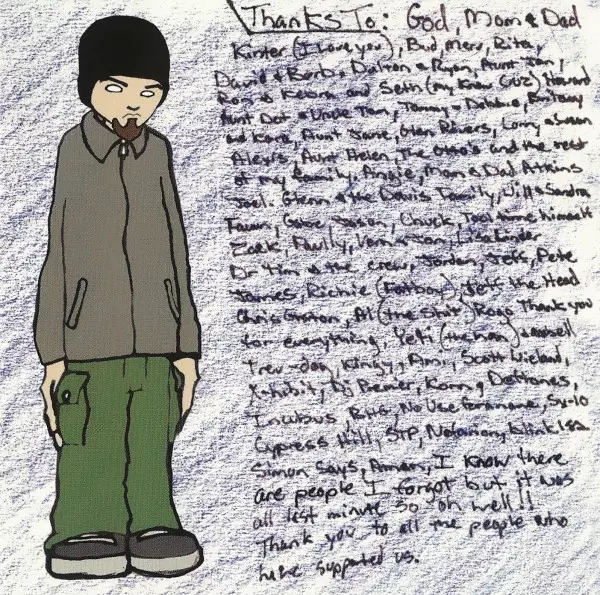 Thanks To: God, Mom & Dad
Kinter (I love you), Bud, Merv, Rita,
David & Barb, Dalton & Ryan, Aunt Jan,
Ron & and Seth (my Know Guz) Howard
Aunt Dot & Uncle Tom, Tommy & Debbie, Brittany
and Kara, Aunt Jane, Glen Rivers, Lorry &
Alexis, Aunt Helen, The Otto's and the rest
of my family, Angie, Mom & Dad Atkins
Joel. Glenn & the Davis Family, Will & Sandra
Fawn, Gabe, Jason, Chuck, Tool time himself
Zack, Paully, Vern & Jan, Lisa
Dr Tim & the crew, Jordan, Jeff, Pete
James, Richie (Fatboy), Jeff the Head
Chris Groton, Al (the Shit) Kogo Thank you
for everything, Yeti (the man)
Trev-dog, Kingy, Ami, Scott Wieland,
X-hibit, Dj Premier, Korn & Deftones,
Incubus, BHG, No Use for a name, Sx-10
Cypress Hill, STP, Notorion, blink 182
Simon Says, Aman, I know there
are people I forgot but it was
all last minute so oh well!!
Thank you to all the people who
have supported us.